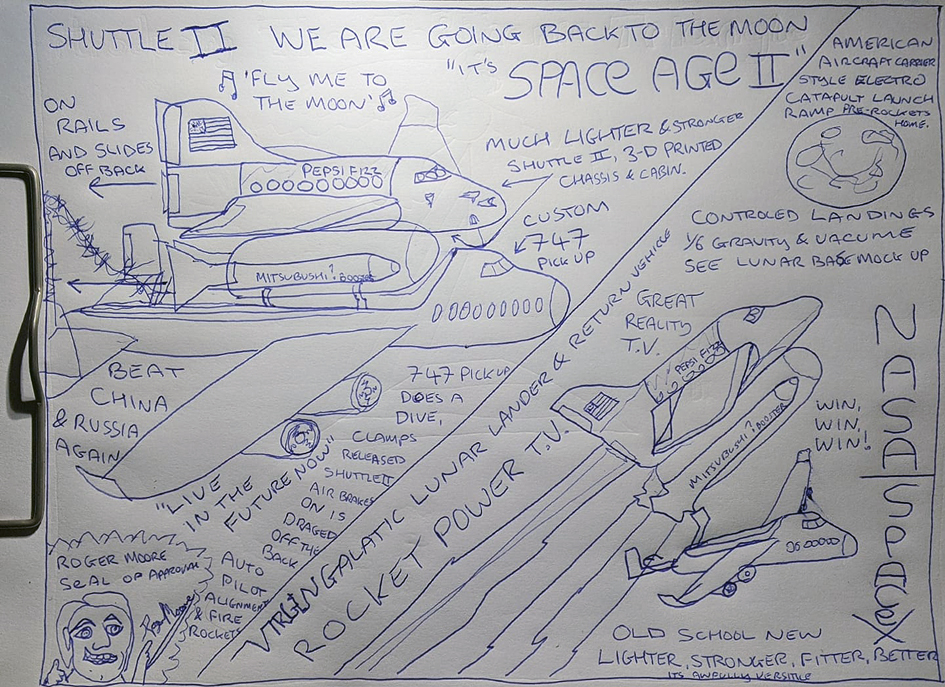 SHUTTLE II WE ARE GOING BACK TO THE MOON
"IT'S SPACE AGE II"
'FLY ME TO
THE MOON'
ON
RAILS
AND SLIDES
OFF BACK
PEPSI FIZZ
MUCH LIGHTER & STRONGER
SHUTTLE II, 3-D PRINTED
CHASSIS & CABIN.
CUSTOM
747
PICK UP
MITSUBUSHI? BOOSTER
AMERICAN
AIRCRAFT CARRIER
STYLE ELECTRO
CATAPULT LAUNCH
RAMP PRE-ROCKETS
HOME.
CONTROLED LANDINGS
1/6 GRAVITY & VACUME
SEE LUNAR BASE MOCK UP
BEAT
CHINA
& RUSSIA
AGAIN
747 PICK UP
DOES A
DIVE,
CLAMPS
RELEASED
SHUTTLE II
AIR BRAKES
ON IS
DRAGED
OFF THE
BACK
AUTO
PILOT
ALIGNMENT
& FIRE
ROCKETS
"LIVE
IN THE
FUTURE NOW"
ROGER MOORE
SEAL OF APPROVAL
Roger Moore
VIRGIN GALATIC LUNAR LANDER & RETURN VEHICLE
ROCKET POWER T.V.
GREAT
REALITY
T.V.
PEPSI FIZZ
MITSUBUSHI? BOOSTER
WIN,
WIN,
WIN!
NASA/SPACEX
OLD SCHOOL NEW
LIGHTER, STRONGER, FITTER, BETTER
ITS AWFULLY VERSITLE